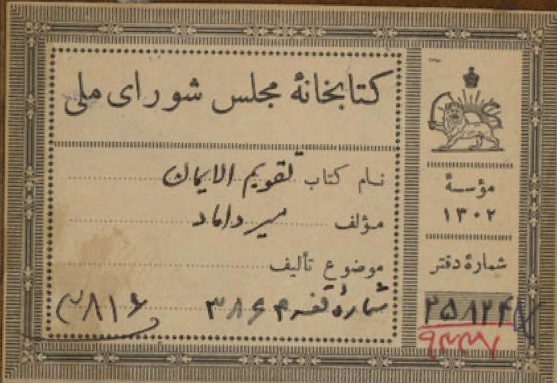 کتابخانهٔ مجلس شورای ملی
نام کتاب تقویم الایمان
مؤلف میر داماد
موضوع تألیف
شمارهٔ قفسه ۳۸۶۴
۸۱۶
مؤسسهٔ
۱۳۰۲
شمارهٔ دفتر